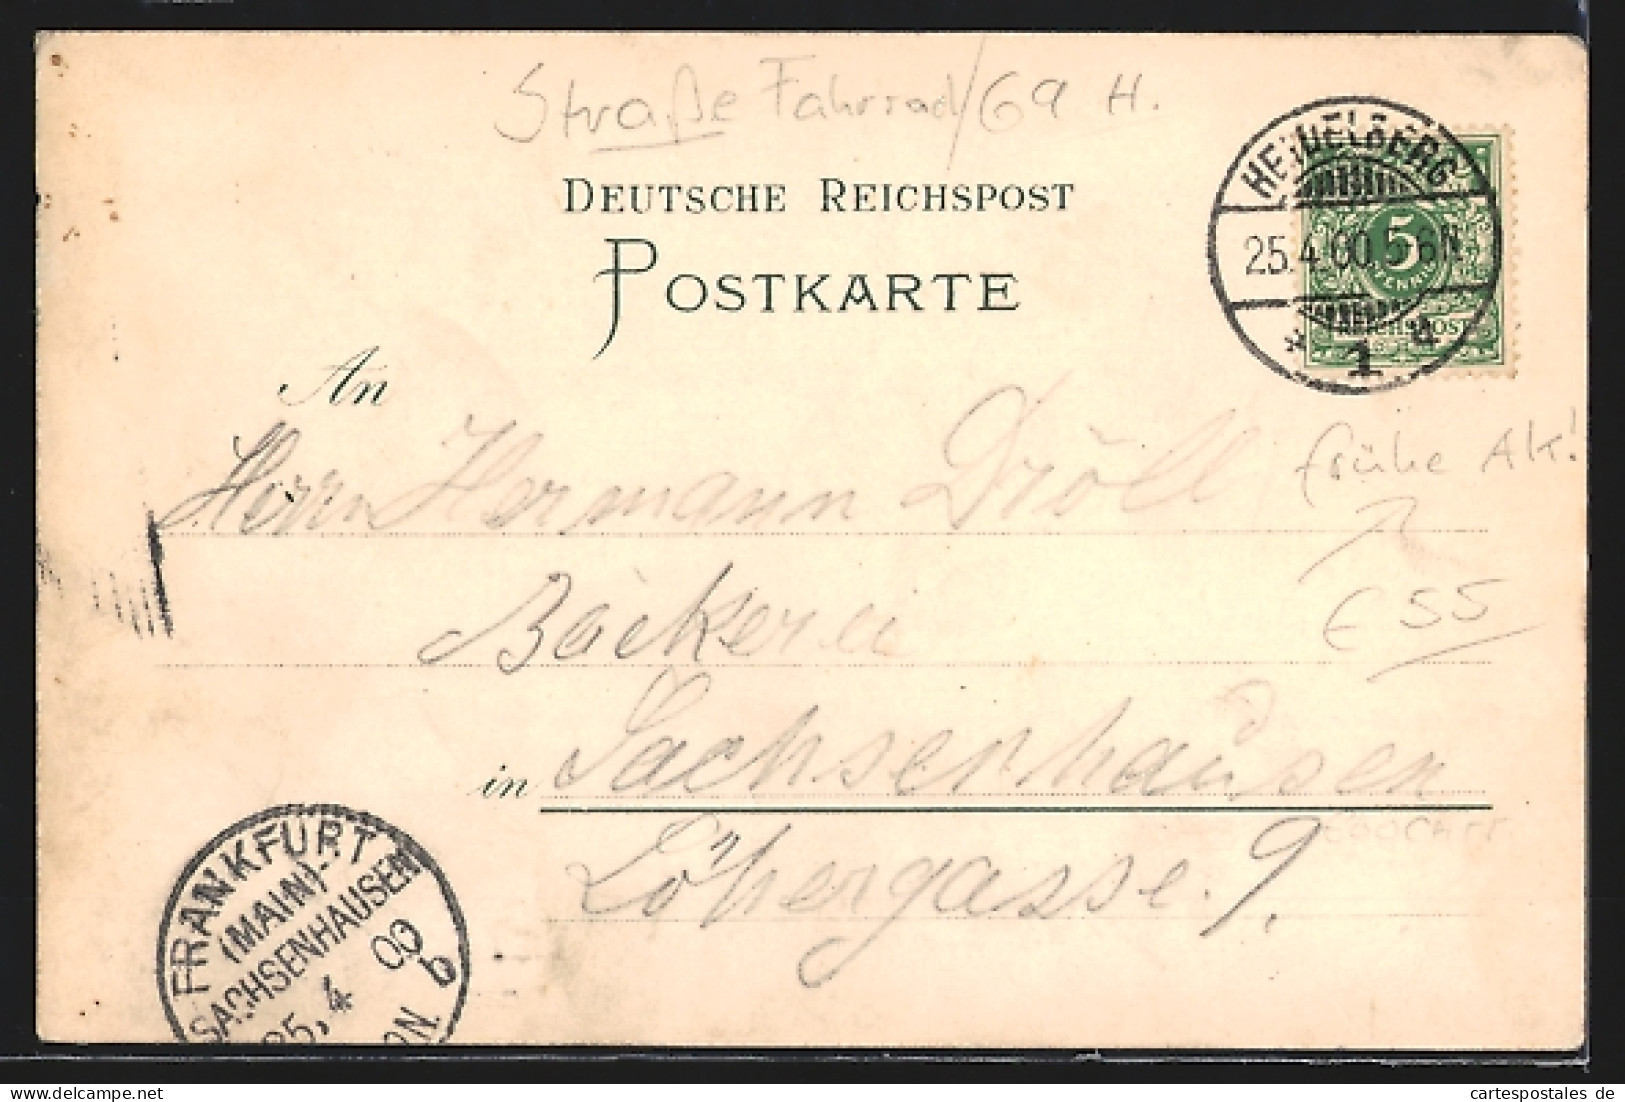 Straße Fahrrad/69 H.
DEUTSCHE REICHSPOST
POSTKARTE
HEIDELBERG
25.4.00.5-6N
* 1 a
5
PFENNIG
REICHSPOST
An
Herrn Hermann Dröll
frühe AK!
Bäckerei
€ 55
in Sachsenhausen
Löhergasse. 9.
FRANKFURT
(MAIN)-
SACHSENHAUSEN
25.4 00
b
ON.
delcampe.net
cartespostales de